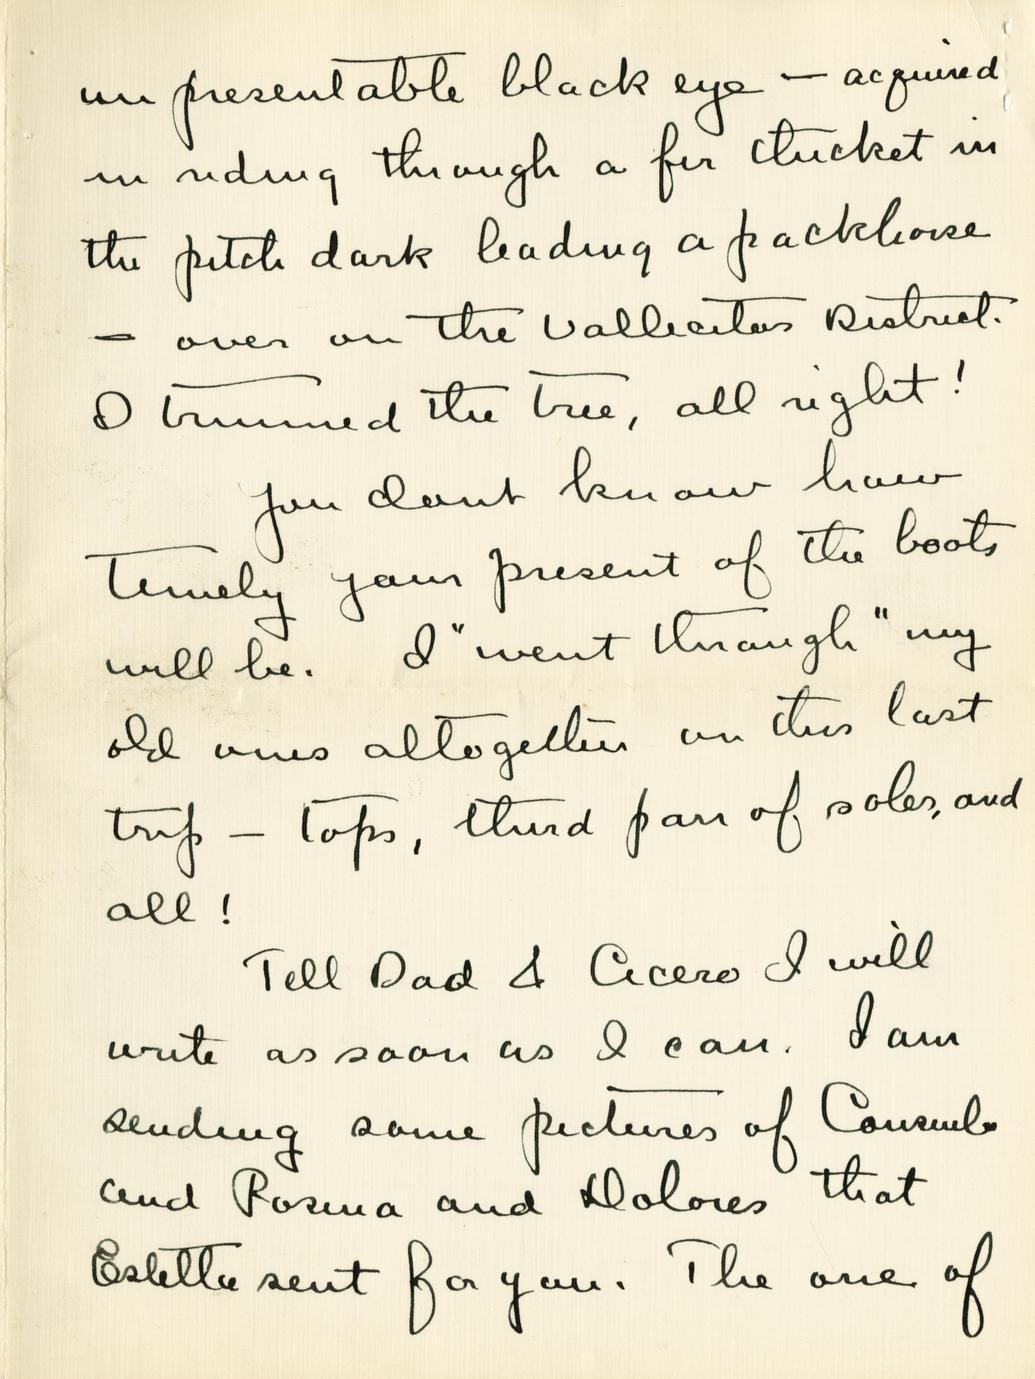 un presentable black eye — acquired
in riding through a fir thicket in
the pitch dark leading a packhorse
— over on the Vallecitos District.
I trimmed the tree, all right!
You dont know how
timely your present of the boots
will be. I "went through" my
old ones altogether on this last
trip — tops, third pair of soles, and
all!
Tell Dad & Cicero I will
write as soon as I can. I am
sending some pictures of Consuelo
and Rosina and Dolores that
Estella sent for you. The one of